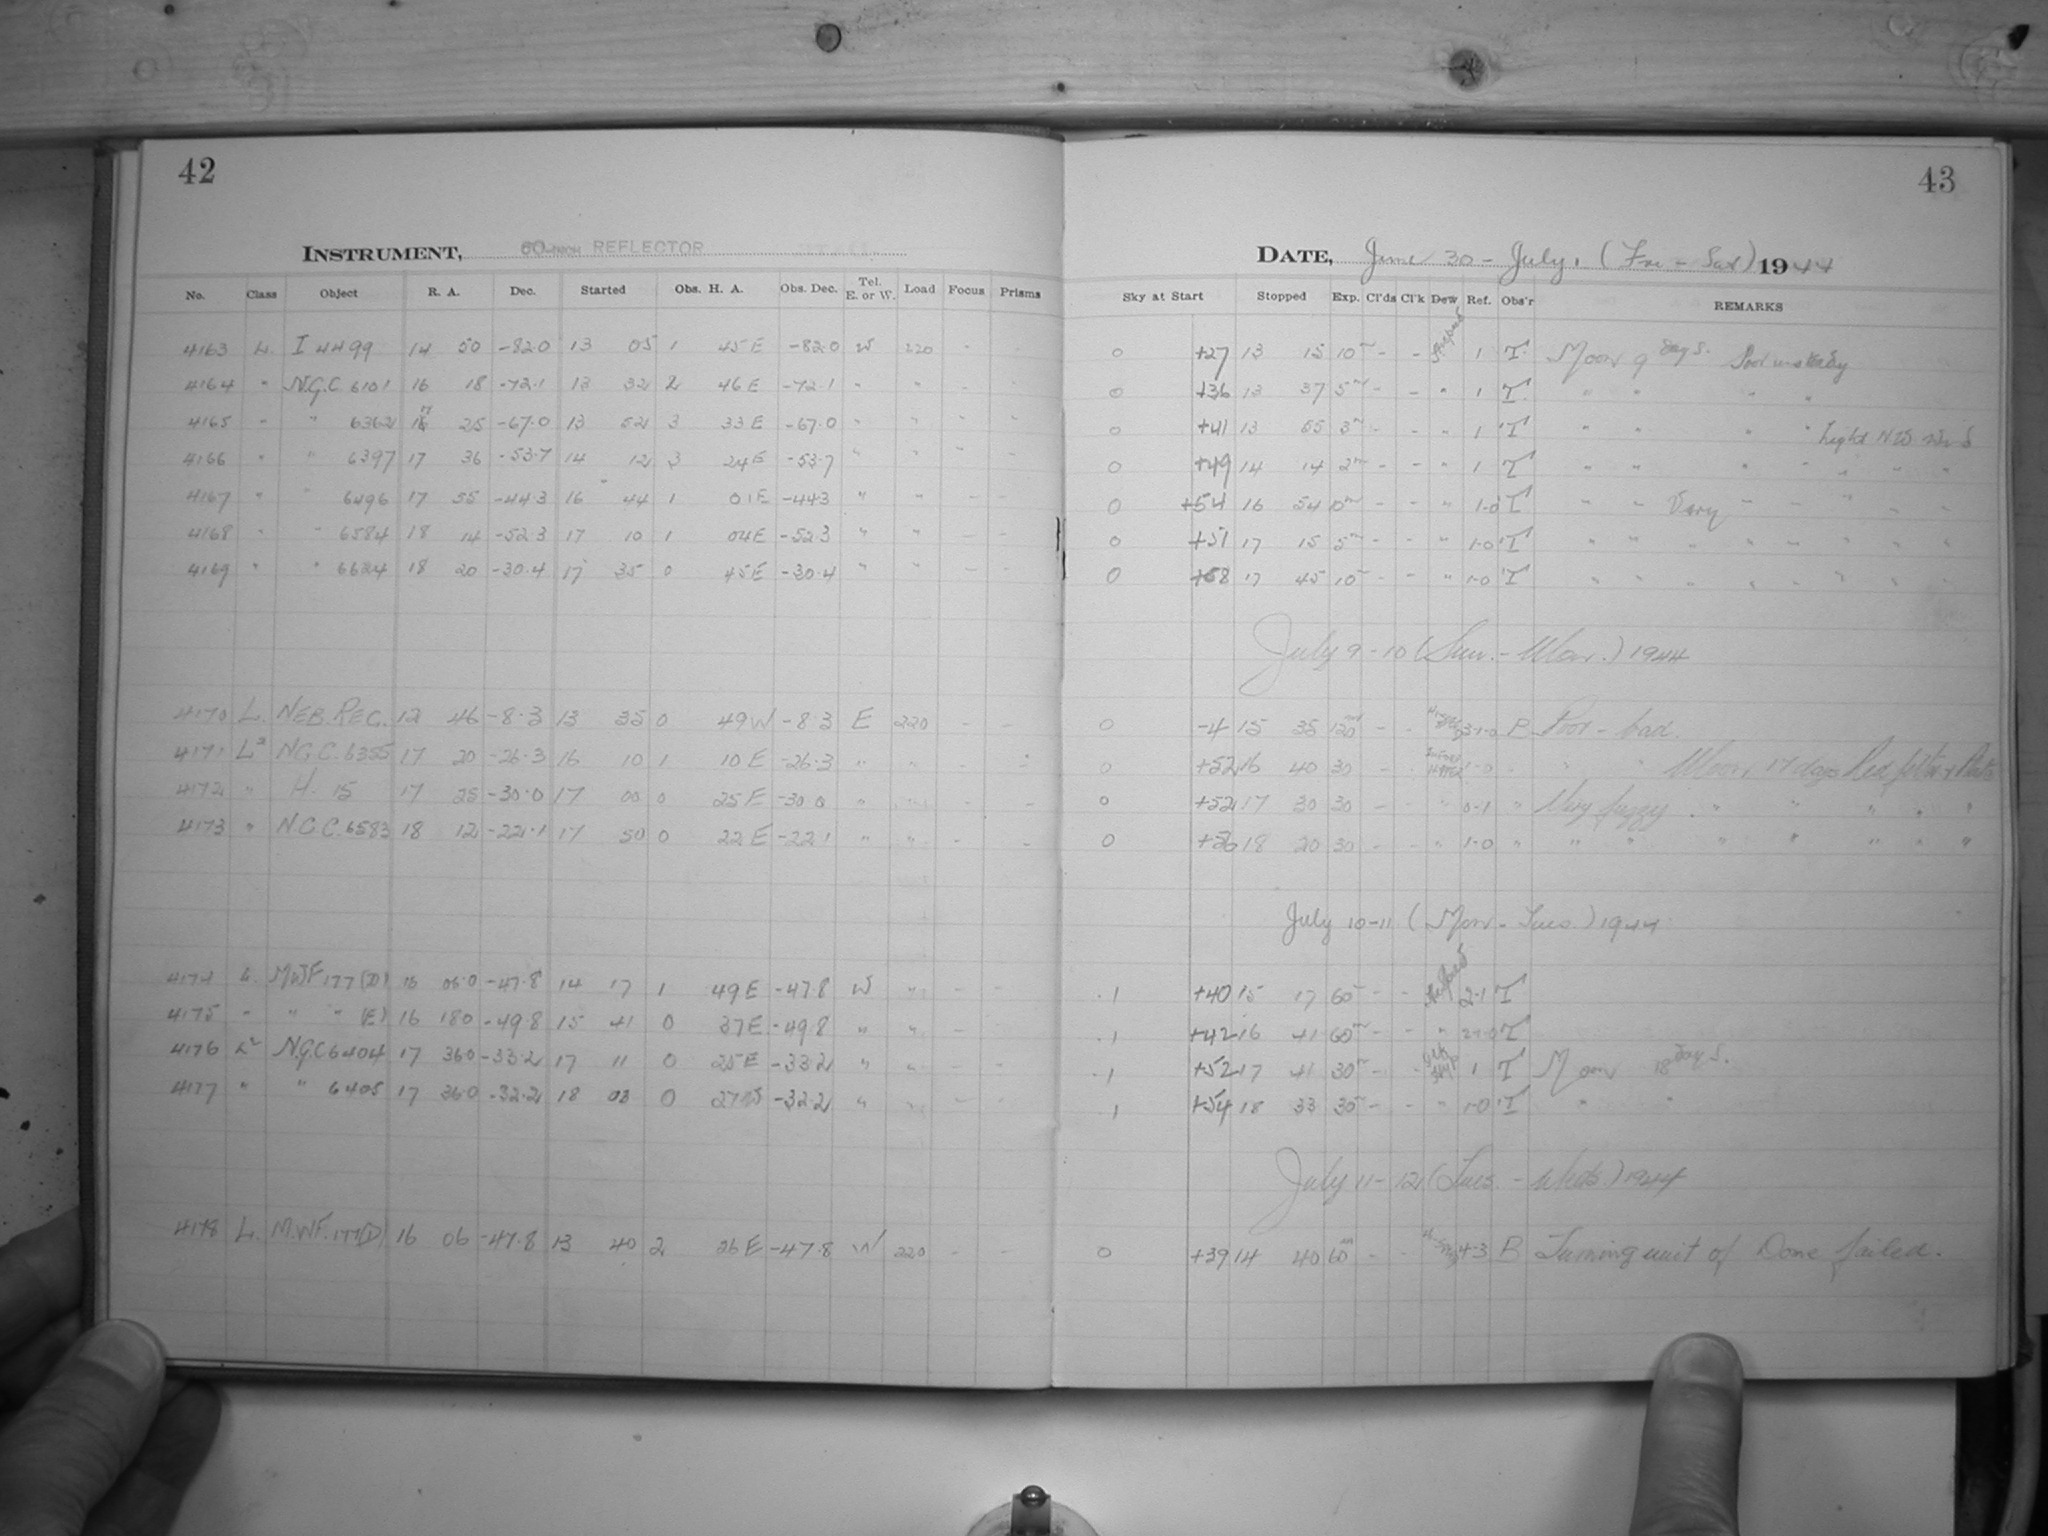 42
INSTRUMENT, 60-INCH REFLECTOR
No. Class Object R. A. Dec. Started Obs. H. A. Obs. Dec. Tel. E. or W. Load Focus Prisms
4163 L. I 4499 14 50 -82.0 13 05 1 45 E -82.0 W 220 - -
4164 " N.G.C 6101 16 18 -72.1 13 32 2 46 E -72.1 " " - -
4165 " " 6362 17 25 -67.0 13 52 3 33 E -67.0 " " - -
4166 " " 6397 17 36 -53.7 14 12 3 24 E -53.7 " " - -
4167 " " 6496 17 55 -44.3 16 44 1 01 E -44.3 " " - -
4168 " " 6584 18 14 -52.3 17 10 1 04 E -52.3 " " - -
4169 " " 6624 18 20 -30.4 17 35 0 45 E -30.4 " " - -
4170 L. NEB. REG. 12 46 -8.3 13 35 0 49 W -8.3 E 220 - -
4171 L² N.G.C. 6355 17 20 -26.3 16 10 1 10 E -26.3 " " - -
4172 " H. 15 17 25 -30.0 17 00 0 25 E -30.0 " " - -
4173 " N.G.C. 6583 18 12 -22.1 17 50 0 22 E -22.1 " " - -
4174 L. MWF 177 (D) 16 06.0 -47.8 14 17 1 49 E -47.8 W " - -
4175 " " " (E) 16 18.0 -49.8 15 41 0 37 E -49.8 " " -
4176 L² N.G.C 6404 17 36.0 -33.2 17 11 0 25 E -33.2 " " - -
4177 " " 6405 17 36.0 -32.2 18 03 0 27 W -32.2 " " - -
4178 L. M.WF. 177 (D) 16 06 -47.8 13 40 2 26 E -47.8 W 220 - -
43
DATE, June 30 - July 1 (Fri - Sat) 1944
Sky at Start Stopped Exp. Cl'ds Cl'k Dew Ref. Obs'r REMARKS
0 +27 13 15 10m - - 1 T Moon 9 days. Poor unsteady
0 +36 13 37 5m - - " 1 T " " " "
0 +41 13 55 3m - - " 1 T " " " " Light NW wind
0 +49 14 14 2m - - " 1 T " " " " " " "
0 +54 16 54 10m - - " 1-0 T " " Very " " " " "
0 +51 17 15 5m - - " 1-0 T " " " " " " " "
0 +58 17 45 10m - - " 1-0 T " " " " " " " "
July 9 - 10 (Sun. - Mon.) 1944
0 -4 15 35 120m - - 1-0 P Poor - bad.
0 +52 16 40 30 - - 1-0 " " " Moon 17 days Red filter +
0 +52 17 30 30 - - " 0-1 " Very fuzzy " " " " "
0 +56 18 20 30 - - " 1-0 " " " " " " " "
July 10-11 (Mon - Tues.) 1944
.1 +40 15 17 60m - - 2-1 T
.1 +42 16 41 60m - - " T
.1 +52 17 41 30m - - 1 T Moon 18 days.
.1 +54 18 33 30m - - " 1-0 T " "
July 11 - 12 (Tues. - Weds) 1944
0 +39 14 40 60m - - 4-3 P Turning unit of Dome failed.